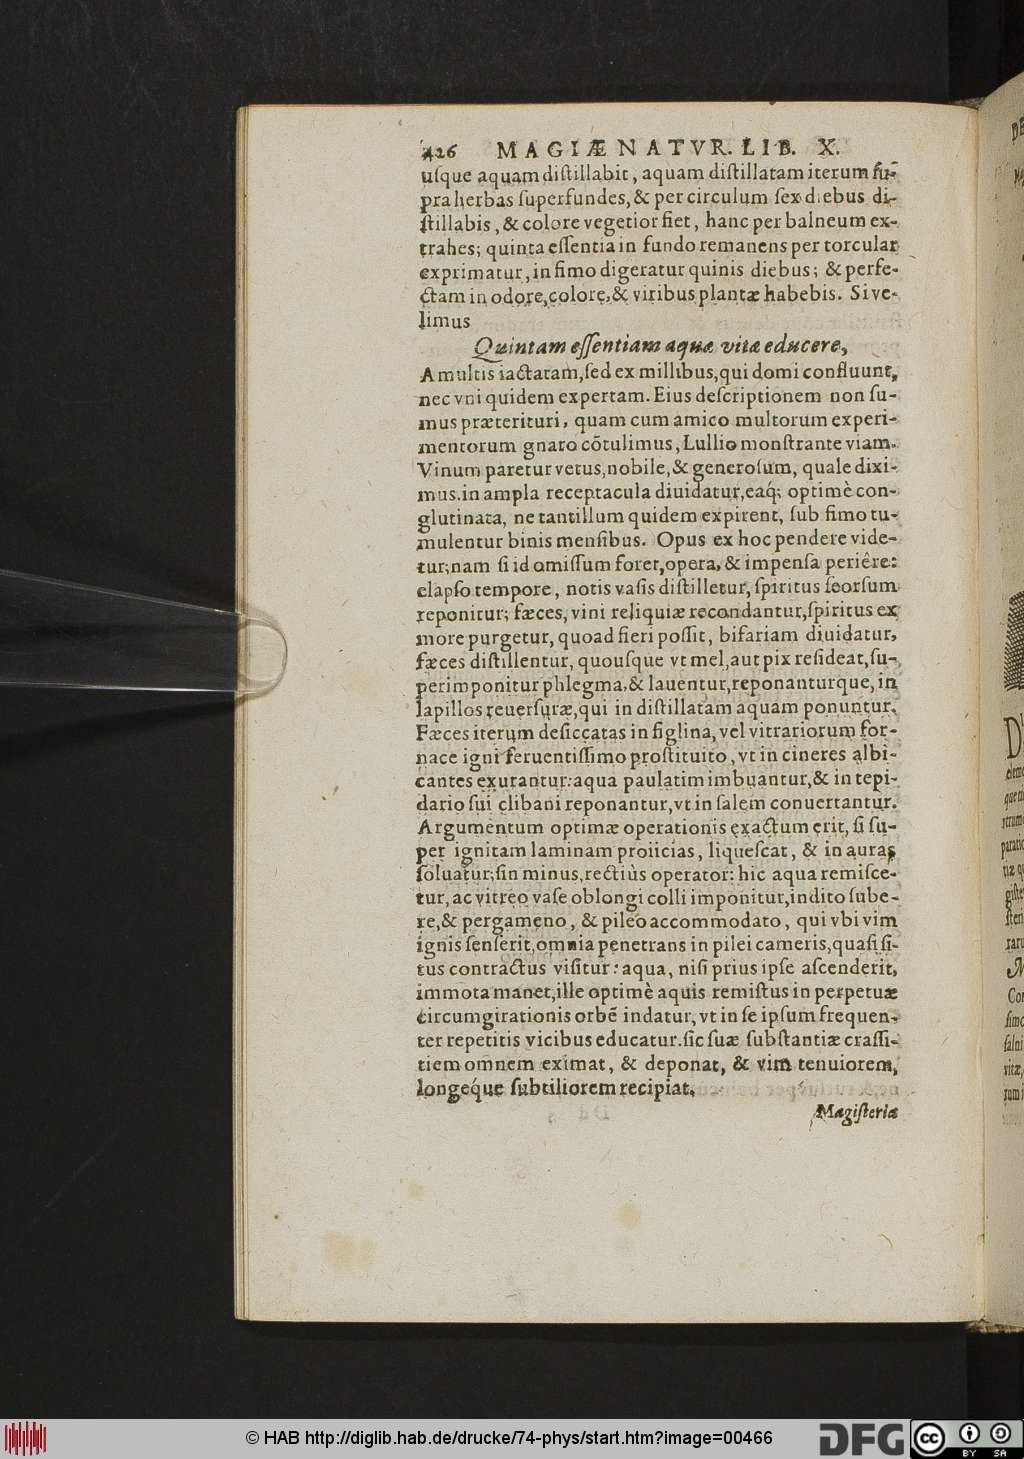 426 MAGIÆ NATVR. LIB. X.
uſque aquam diſtillabit, aquam diſtillatam iterum ſu-
pra herbas ſuperfundes, & per circulum ſex diebus di-
ſtillabis, & colore vegetior fiet, hanc per balneum ex-
trahes; quinta eſſentia in fundo remanens per torcular
exprimatur, in fimo digeratur quinis diebus; & perfe-
ctam in odore, colore, & viribus plantæ habebis. Si ve-
limus
Quintam eſſentiam aquæ vitæ educere,
A multis iactatam, ſed ex millibus, qui domi confluunt,
nec vni quidem expertam. Eius deſcriptionem non ſu-
mus præterituri, quam cum amico multorum experi-
mentorum gnaro cõtulimus, Lullio monſtrante viam.
Vinum paretur vetus, nobile, & generoſum, quale dixi-
mus. in ampla receptacula diuidatur, eaq́; optimè con-
glutinata, ne tantillum quidem expirent, ſub fimo tu-
mulentur binis menſibus. Opus ex hoc pendere vide-
tur; nam ſi id omiſſum foret, opera, & impenſa periêre:
elapſo tempore, notis vaſis diſtilletur, ſpiritus ſeorſum
reponitur; fæces, vini reliquiæ recondantur, ſpiritus ex
more purgetur, quoad fieri poſſit, bifariam diuidatur,
fæces diſtillentur, quouſque vt mel, aut pix reſideat, ſu-
perimponitur phlegma, & lauentur, reponanturque, in
lapillos reuerſuræ, qui in diſtillatam aquam ponuntur.
Fæces iterum deſiccatas in figlina, vel vitrariorum for-
nace igni feruentiſſimo proſtituito, vt in cineres albi-
cantes exurantur: aqua paulatim imbuantur, & in tepi-
dario ſui clibani reponantur, vt in ſalem conuertantur.
Argumentum optimæ operationis exactum erit, ſi ſu-
per ignitam laminam proiicias, liqueſcat, & in auras
ſoluatur; ſin minus, rectiùs operator: hic aqua remiſce-
tur, ac vitreo vaſe oblongi colli imponitur, indito ſube-
re, & pergameno, & pileo accommodato, qui vbi vim
ignis ſenſerit, omnia penetrans in pilei cameris, quaſi ſi-
tus contractus viſitur: aqua, niſi prius ipſe aſcenderit,
immota manet, ille optimè aquis remiſtus in perpetuæ
circumgirationis orbẽ indatur, vt in ſe ipſum frequen-
ter repetitis vicibus educatur. ſic ſuæ ſubſtantiæ craſſi-
tiem omnem eximat, & deponat, & vim tenuiorem,
longeq́ue ſubtiliorem recipiat.
Magiſteria
© HAB http://diglib.hab.de/drucke/74-phys/start.htm?image=00466
DFG
cc BY SA